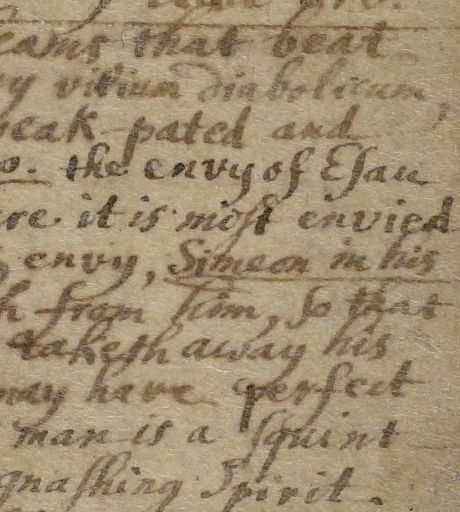 eams that beat
ey vitium diabolicum,
weak-pated and
o. the envy of Eſau
ere it is moſt envied
envy, Simeon in his
h from him, ſo that
taketh away his
may have perfect
man is a ſquint
gnaſhing Spirit.